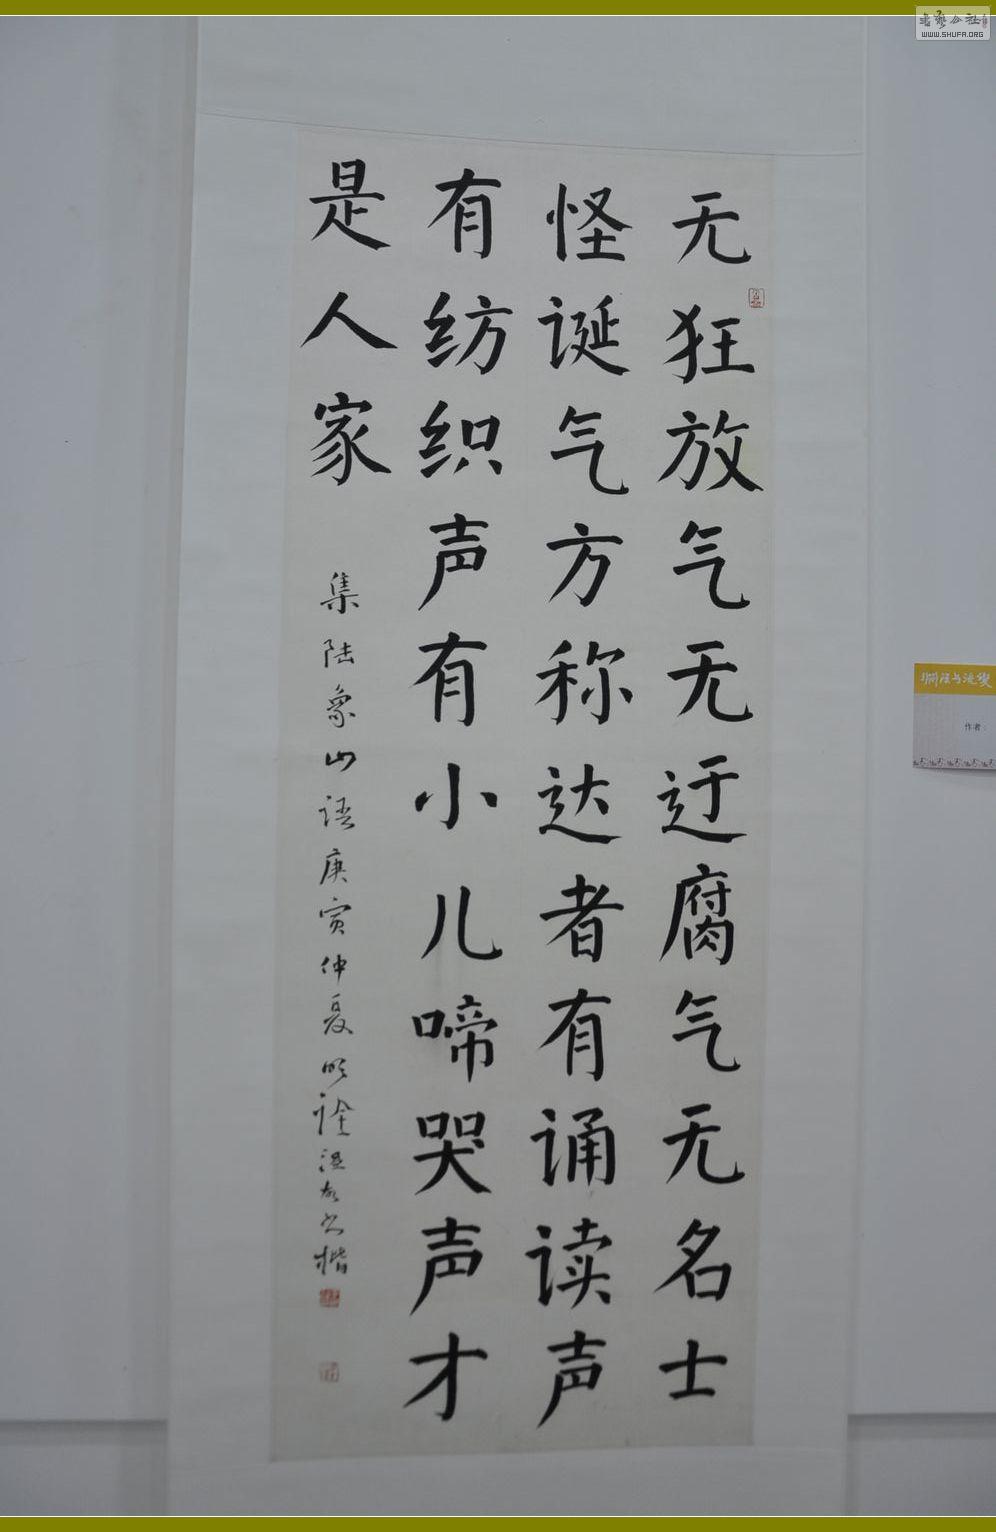 无狂放气无迂腐气无名士
怪诞气方称达者有诵读声
有纺织声有小儿啼哭声才
是人家
集陆象山语庚寅仲夏明诠温故六楷
作者：
书艺公社
WWW.SHUFA.ORG